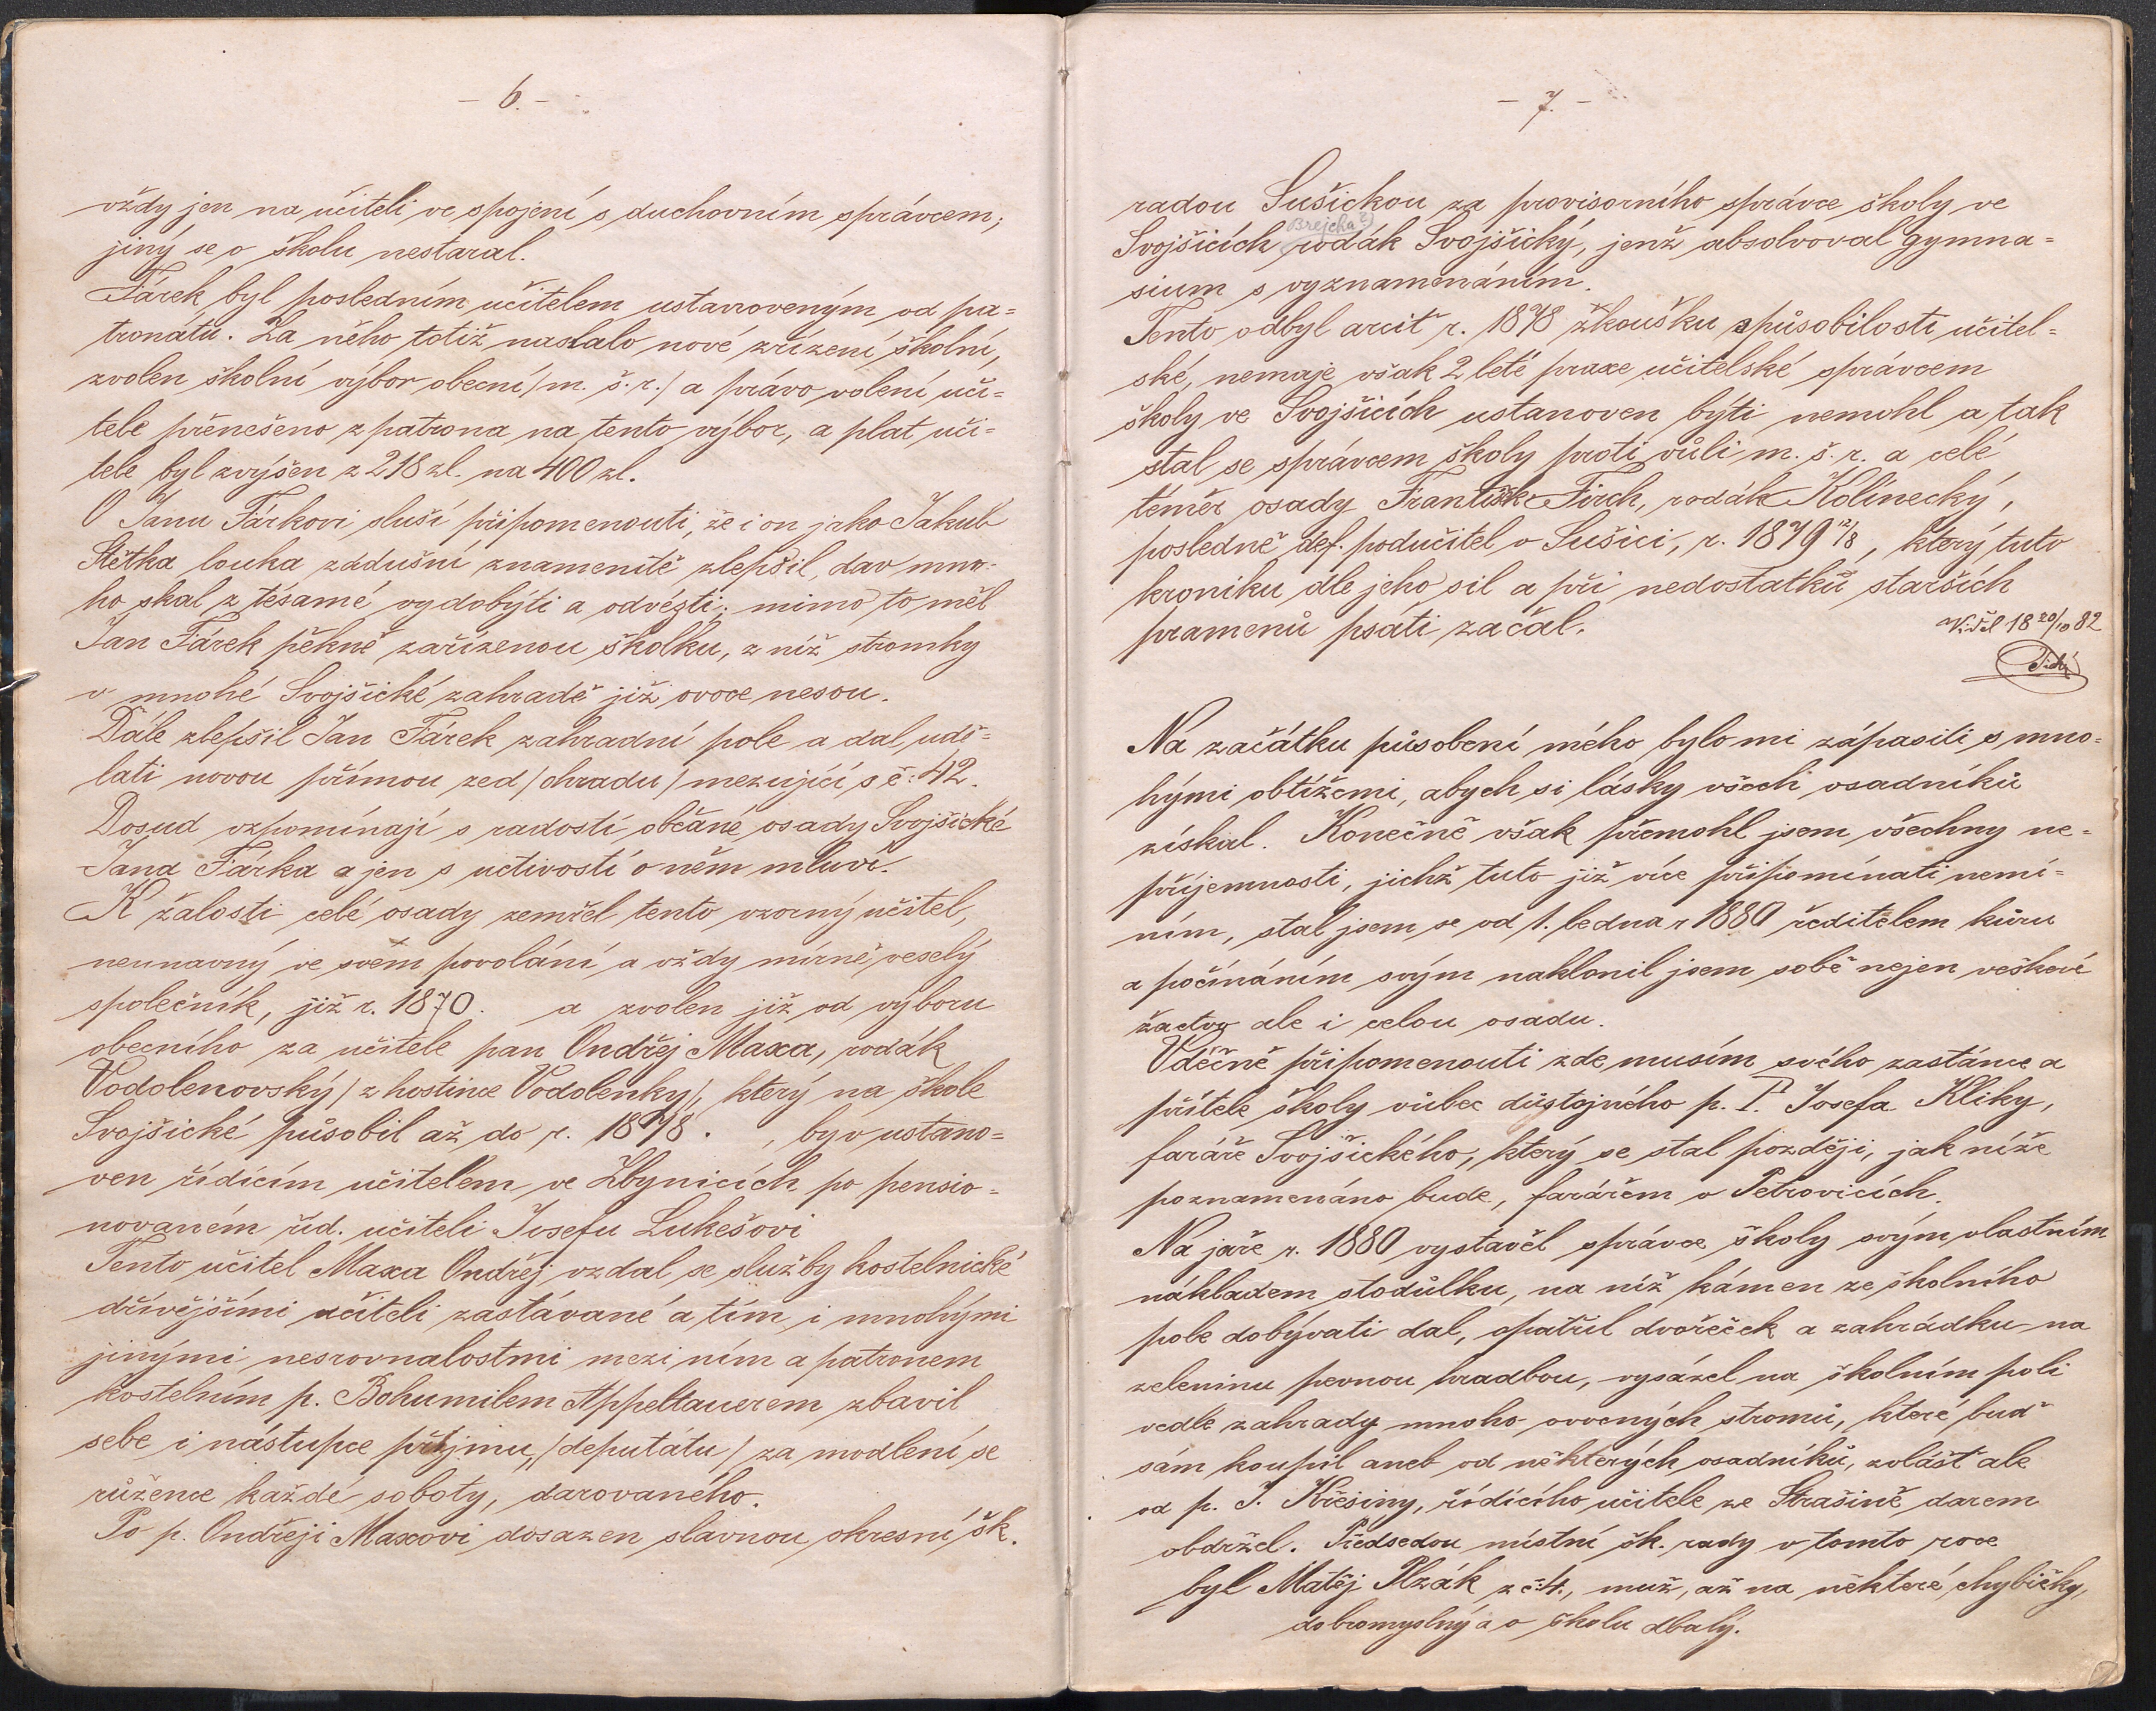 - 6. -
vždy jen na učiteli ve spojení s duchovním správcem;
jiný se o školu nestaral.
Fárek byl posledním učitelem ustanoveným od pa=
tronátu. Za něho totiž nastalo nové zřízení školní,
zvolen školní výbor obecní /m. š. r./ a právo volení uči=
tele přenešeno z patrona na tento výbor, a plat uči=
tele byl zvýšen z 218 zl. na 400 zl.
O Janu Fárkovi sluší připomenouti, že i on jako Jakub
Stětka louka zádušní znamenitě zlepšil, dav mno=
ho skal z tésamé vydobýti a odvézti; mimo to měl
Jan Fárek pěkně zařízenou školku, z níž stromky
v mnohé Svojšické zahradě již ovoce nesou.
Dále zlepšil Jan Fárek zahradní pole a dal udě=
lati novou přímou zed /ohradu/ mezující s č: 42.
Dosud vzpomínají s radostí občané osady Svojšické
Jana Fárka a jen s uctivostí o něm mluví.
K žalosti celé osady zemřel tento vzorný učitel,
neunavný ve svém povolání a vždy mírně veselý
společník, již r. 1870. a zvolen již od výboru
obecního za učitele pan Ondřej Maxa, rodák
Vodolenovský /z hostince Vodolenky/, který na škole
Svojšické působil až do r. 1878. , byv ustano=
ven řídícím učitelem ve Zbynicích po pensio=
novaném říd. učiteli Josefu Lukešovi
Tento učitel Maxa Ondřej vzdal se služby kostelnické
dřívějšími učiteli zastávané a tím i mnohými
jinými nesrovnalostmi mezi ním a patronem
kostelním p. Bohumilem Appeltauerem zbavil
sebe i nástupce příjmu, /deputátu/ za modlení se
růžence každé soboty, darovaného.
Po p. Ondřeji Maxovi dosazen slavnou okresní šk.
- 7. -
radou Sušickou za provisorního správce školy ve
Brejcha?)
Svojšicích rodák Svojšický, jenž absolvoval gymna=
sium s vyznamenáním.
Tento odbyl arciť r. 1878 zkoušku spůsobilosti učitel=
ské, nemaje však 2 leté praxe učitelské správcem
školy ve Svojšicích ustanoven býti nemohl a tak
stal se správcem školy proti vůli m. š. r. a celé
téměř osady František Firch, rodák Kolínecký,
posledně def. podučitel v Sušici, r. 1879 12/8, který tuto
kroniku dle jeho sil a při nedostatků starších
pramenů psáti začal.
Viděl 18 20/10 82
Na začátku působení mého bylo mi zápasiti s mno=
hými obtížemi, abych si lásky všech osadníků
získal. Konečně však přemohl jsem všechny ne=
příjemnosti, jichž tuto již více připomínati nemí=
ním, stal jsem se od 1. ledna r 1880 ředitelem kůru
a počínáním svým naklonil jsem sobě nejen veškeré
žactvo ale i celou osadu.
Vděčně připomenouti zde musím svého zastánce a
přítele školy vůbec důstojného p. P. Josefa Kliky,
faráře Svojšického, který se stal později, jak níže
poznamenáno bude, farářem v Petrovicích.
Na jaře r. 1880 vystavěl správce školy svým vlastním
nákladem stodůlku, na níž kámen ze školního
pole dobývati dal, opatřil dvořeček a zahrádku na
zeleninu pevnou hradbou, vysázel na školním poli
vedle zahrady mnoho ovocných stromů, které buď
sám koupil aneb od některých osadníků, zvlášť ale
od p. J. Křesiny, řídícího učitele ze Strašině darem
obdržel. Předsedou místní šk. rady v tomto roce
byl Matěj Plzák z č. 4., muž, až na některé chybičky,
dobromyslný a o školu dbalý.